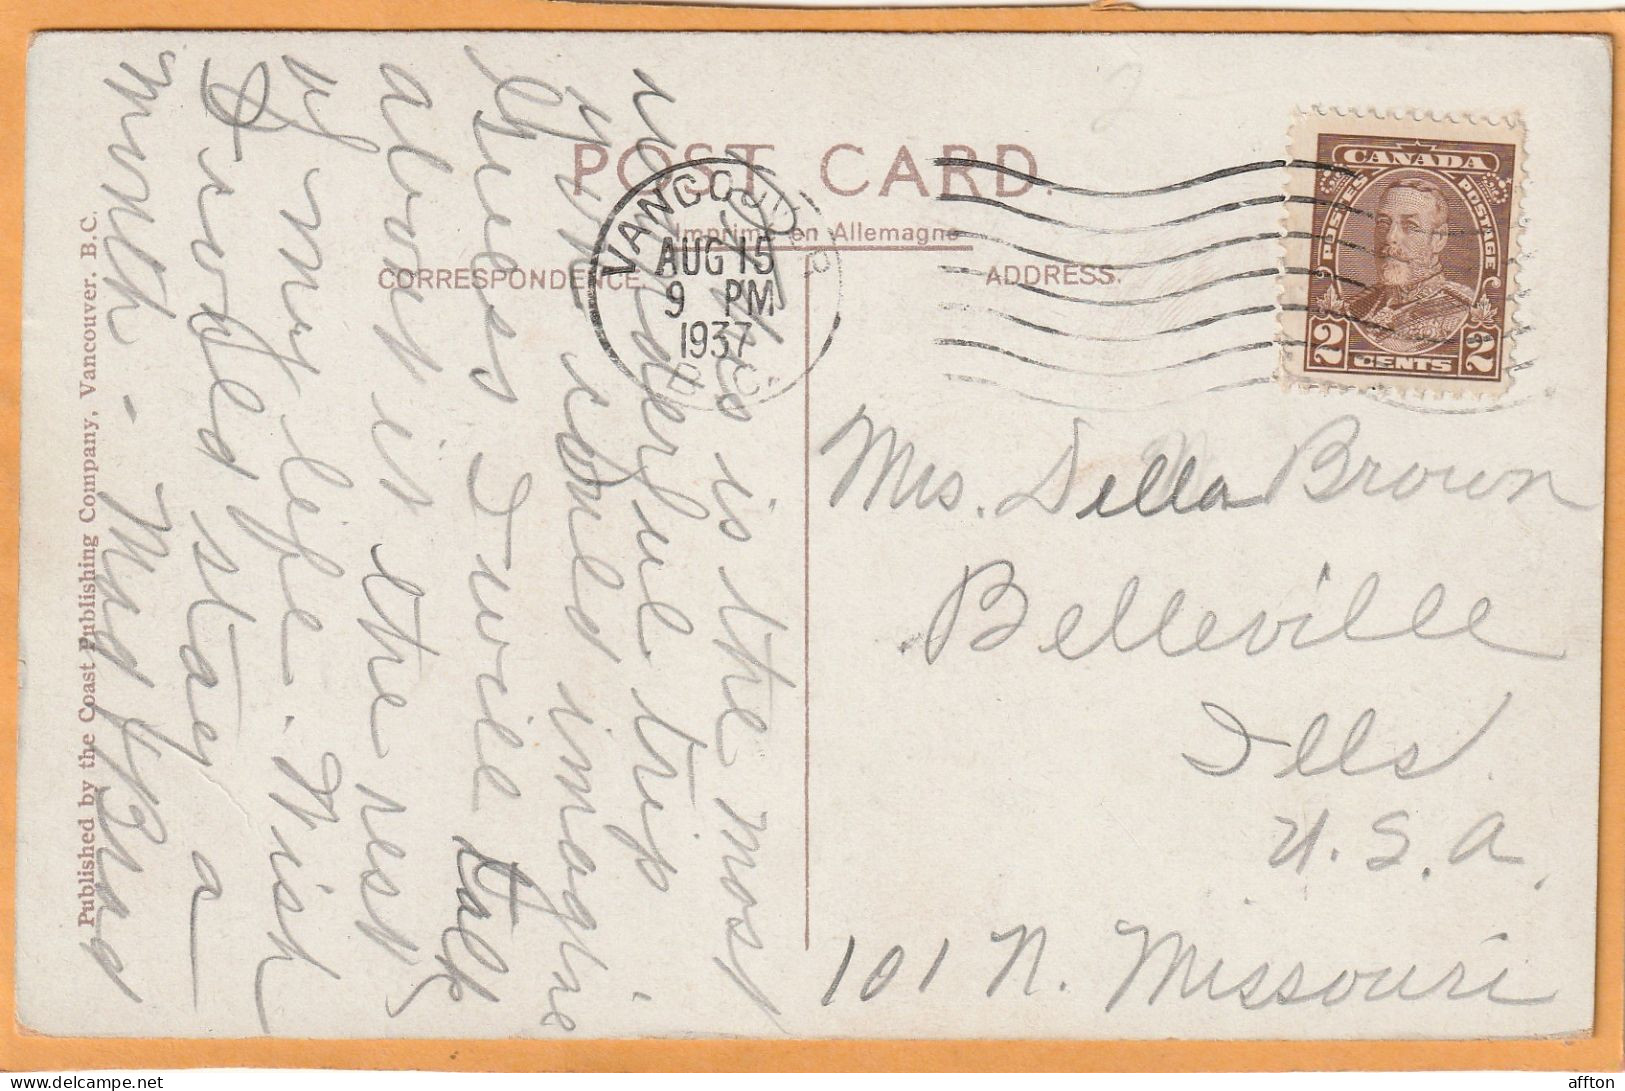 POST CARD.
Imprimé en Allemagne
CORRESPONDENCE.
ADDRESS.
VANCOUVER
AUG 15
9 PM
1937
CANADA
POSTES POSTAGE
2 CENTS 2
this is the most
wonderful trip
you could imagine.
Guess I will talk
about it the rest
of my life. Wish
I could stay a
month - Mrs Brad
Mrs. Della Brown
Belleville
Ills.
U.S.A.
101 N. Missouri
Published by the Coast Publishing Company, Vancouver. B.C.
affton